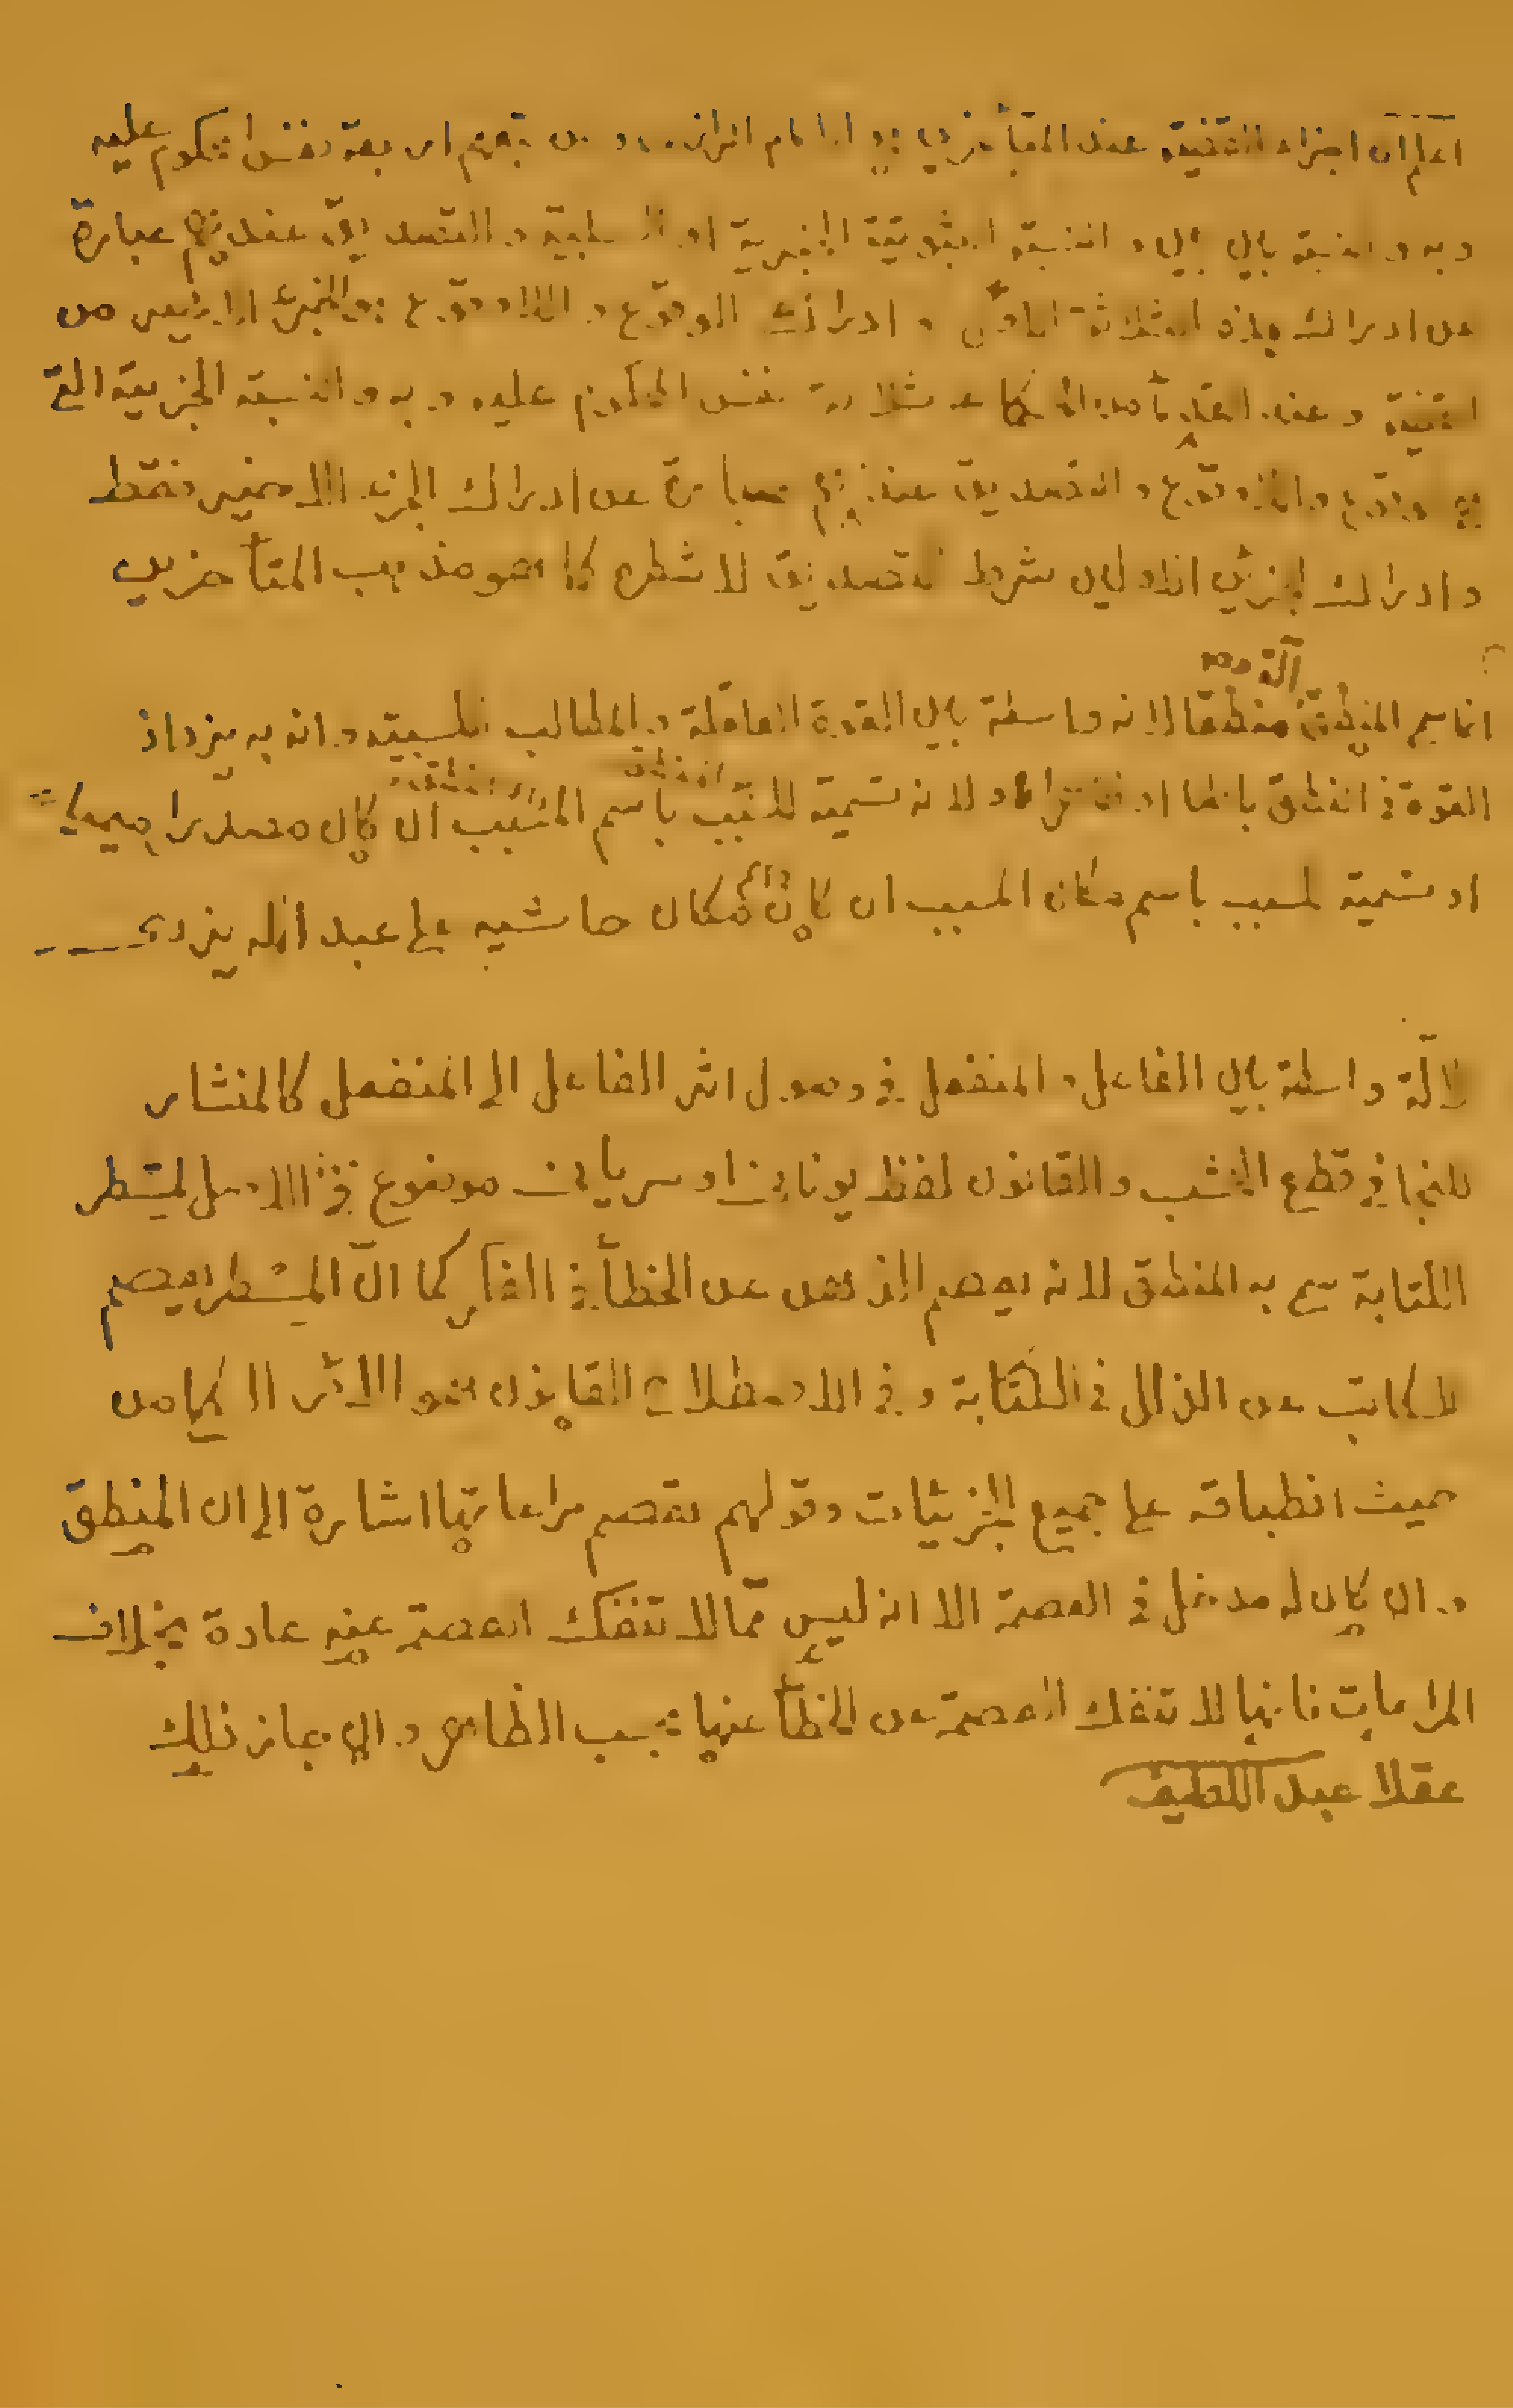 اعلم ان اجزاء القضية عند المتأخرين الامام الرازى ومن تبعهم اربعة نفس المحكوم عليه
وبه والنسبة بين بين والنسبة الثبوتية الخبرية او السلبية والتصديق عندهم عبارة
عن ادراك هذه الثلاثة وادراك الوقوع واللاوقوع هو الجزء الاخير من
القضية وعند القدماء الحكماء ثلاثة نفس المحكوم عليه وبه والنسبة الخبرية التى
هى وقوع واللاوقوع والتصديق عندهم عبارة عن ادراك الجزء الاخير فقط
وادراك الجزئين الاولين شرط للتصديق لا شطر كما هو مذهب المتأخرين
آلة
انما سمى المنطق منطقا لانه واسطة بين القوة العاقلة والمطالب الكسبية وانه به يزداد
القوة فى النطق باطنا او ظاهرا لانه تسمية للسبب باسم المسبب ان كان مصدرا ميميا
او تسمية لسبب باسم مكان المسبب ان كان اسم مكان حاشيه على عبد الله يزدى
الآلة واسطة بين الفاعل والمنفعل فى وصول اثر الفاعل الى المنفعل كالمنشار
للنجار فى قطع الخشب والقانون لفظ يونانى او سريانى موضوع فى الاصل لمسطر
الكتابة سمى به المنطق لانه يعصم الذهن عن الخطأ فى الفكر كما انّ المسطر يعصم
الكاتب عن الزلل فى الكتابة وفى الاصطلاح القانون هو الامر الكلى من
حيث انطباقه على جميع الجزئيات وقولهم تعصم مراعاتها اشارة الى ان المنطق
وان كان له مدخل فى العصمة الا انه ليس ممّا لا تنفك العصمة عنه عادة بخلاف
المراعات فانها لا تنفك العصمة عن الخطأ عنها بحسب الظاهر وان جاز ذلك
عقلا عبد اللطيف